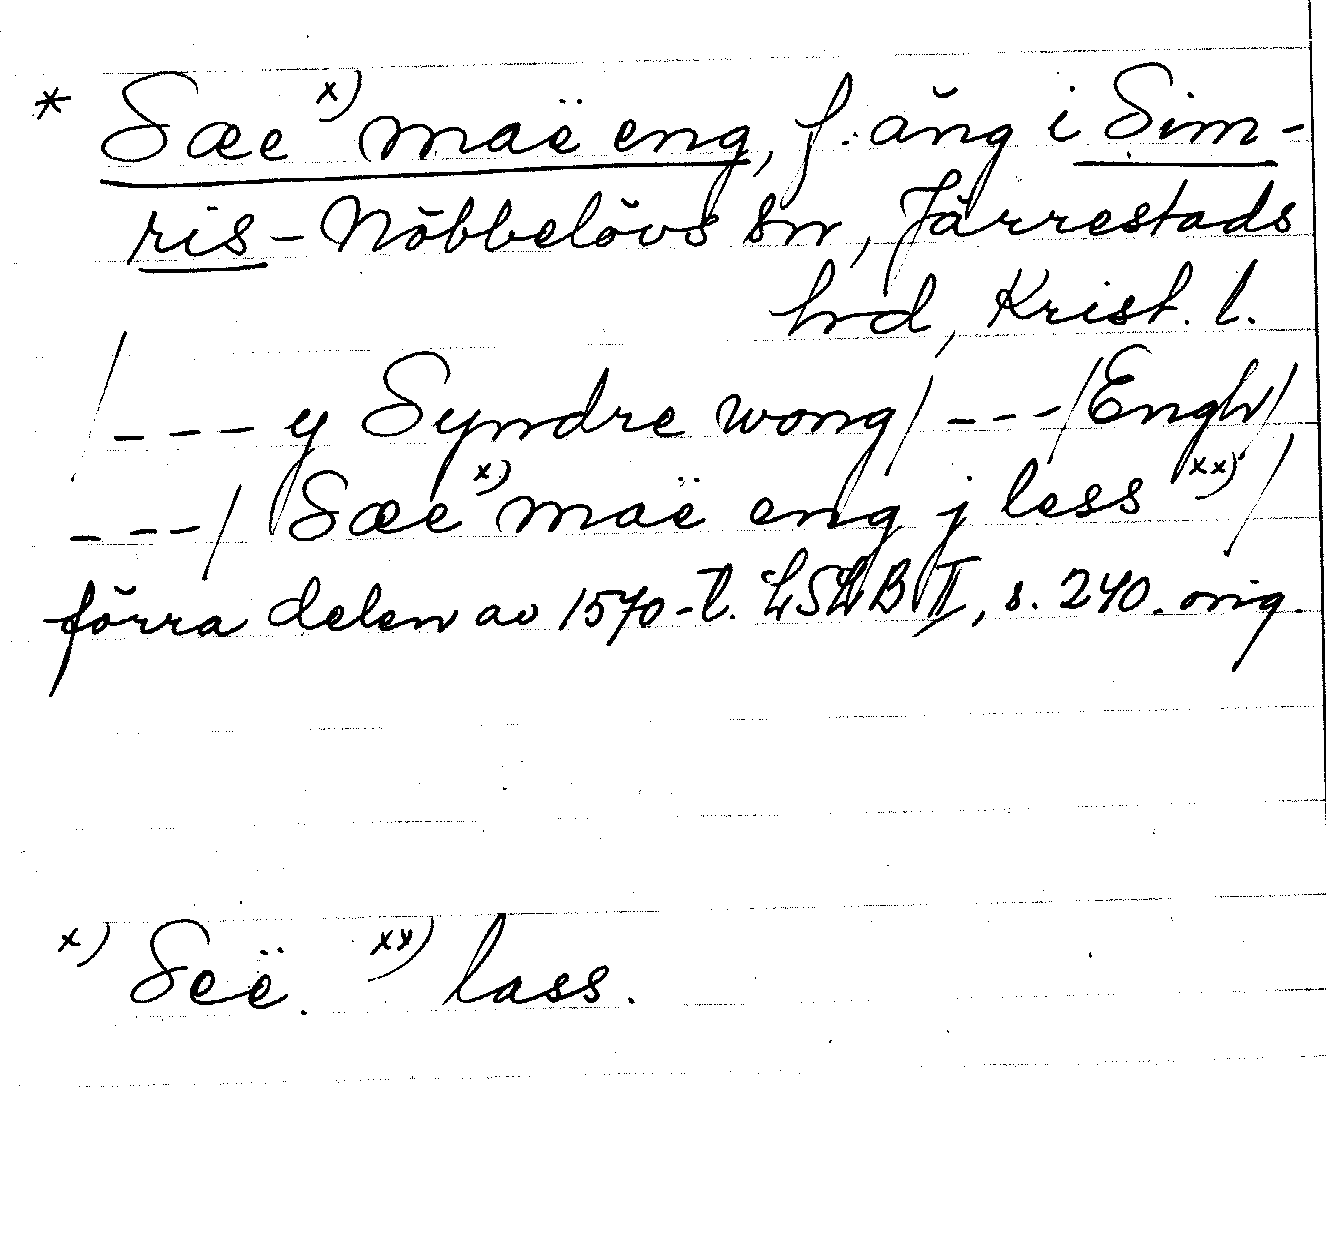 * Sæe x) maë eng, f. äng i Sim-
ris-Nöbbelövs sn, Järrestads
hrd, Krist. l.
/--- y Syndre wong/ ---/Engh/,
---/ Sæe x) maë eng j less xx)/
förra delen av 1570-t. LSLB II, s. 240. orig.
x) Seë. xx) lass.